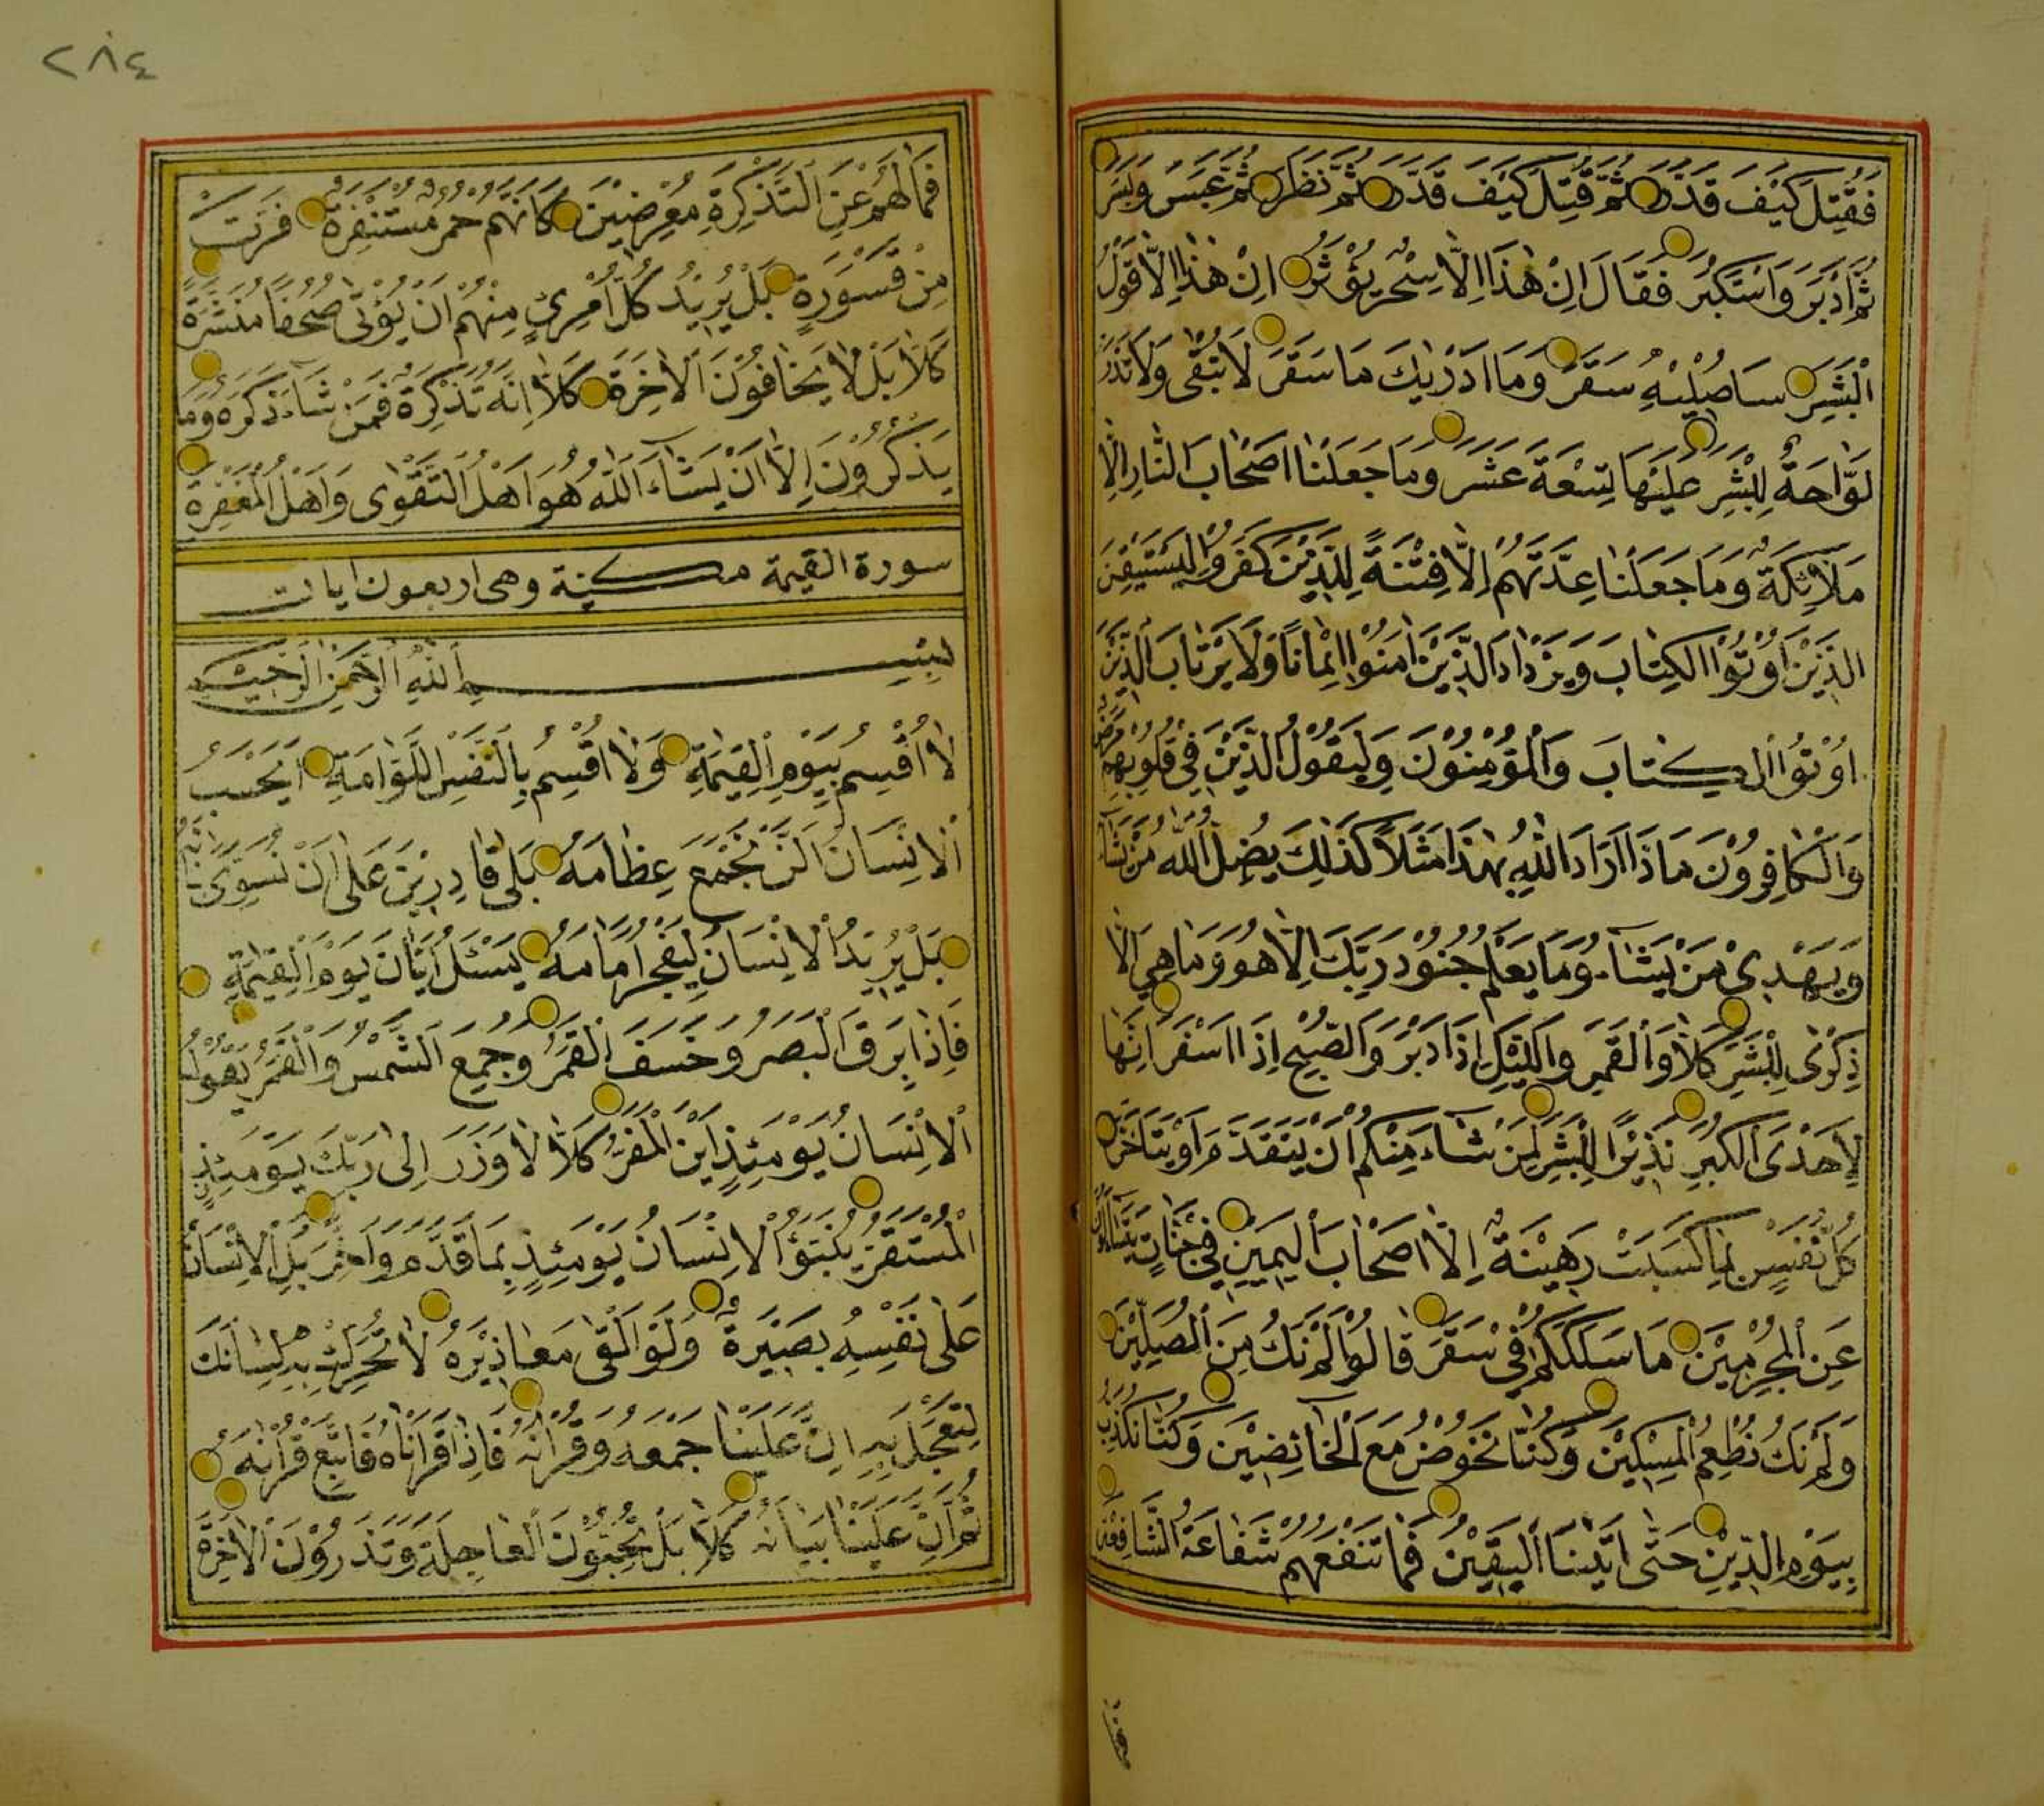 فَقُتِلَ كَيْفَ قَدَّرَ ثُمَّ قُتِلَ كَيْفَ قَدَّرَ ثُمَّ نَظَرَ ثُمَّ عَبَسَ وَبَسَرَ
ثُمَّ اَدْبَرَ وَاسْتَكْبَرَ فَقَالَ اِنْ هٰذَا اِلَّا سِحْرٌ يُؤْثَرُ اِنْ هٰذَا اِلَّا قَوْلُ
الْبَشَرِ سَاُصْلِيْهِ سَقَرَ وَمَا اَدْرٰيكَ مَا سَقَرَ لَا تُبْقٰى وَلَا تَذَرُ
لَوَّاحَةٌ لِلْبَشَرِ عَلَيْهَا تِسْعَةَ عَشَرَ وَمَا جَعَلْنَا اَصْحَابَ النَّارِ اِلَّا
مَلٰٓئِكَةً وَمَا جَعَلْنَا عِدَّتَهُمْ اِلَّا فِتْنَةً لِلَّذِيْنَ كَفَرُوا لِيَسْتَيْقِنَ
الَّذِيْنَ اُوْتُوْا الْكِتَابَ وَيَزْدَادَ الَّذِيْنَ اٰمَنُوْا اِيْمَانًا وَلَا يَرْتَابَ الَّذِيْنَ
اُوْتُوْا الْكِتَابَ وَالْمُؤْمِنُوْنَ وَلِيَقُوْلَ الَّذِيْنَ فِيْ قُلُوْبِهِمْ مَرَضٌ
وَالْكَافِرُوْنَ مَاذَا اَرَادَ اللّٰهُ بِهٰذَا مَثَلًا كَذٰلِكَ يُضِلُّ اللّٰهُ مَنْ يَشَاءُ
وَيَهْدِيْ مَنْ يَشَاءُ وَمَا يَعْلَمُ جُنُوْدَ رَبِّكَ اِلَّا هُوَ وَمَا هِيَ اِلَّا
ذِكْرٰى لِلْبَشَرِ كَلَّا وَالْقَمَرِ وَالَّيْلِ اِذَا دْبَرَ وَالصُّبْحِ اِذَا اَسْفَرَ اِنَّهَا
لَاِحْدَى الْكُبَرِ نَذِيْرًا لِلْبَشَرِ لِمَنْ شَاءَ مِنْكُمْ اَنْ يَتَقَدَّمَ اَوْ يَتَاَخَّرَ
كُلُّ نَفْسٍ بِمَا كَسَبَتْ رَهِيْنَةٌ اِلَّا اَصْحَابَ الْيَمِيْنِ فِيْ جَنَّاتٍ يَتَسَاءَلُوْنَ
عَنِ الْمُجْرِمِيْنَ مَا سَلَكَكُمْ فِيْ سَقَرَ قَالُوْا لَمْ نَكُ مِنَ الْمُصَلِّيْنَ
وَلَمْ نَكُ نُطْعِمُ الْمِسْكِيْنَ وَكُنَّا نَخُوْضُ مَعَ الْخَائِضِيْنَ وَكُنَّا نُكَذِّبُ
بِيَوْمِ الدِّيْنِ حَتّٰى اَتٰينَا الْيَقِيْنُ فَمَا تَنْفَعُهُمْ شَفَاعَةُ الشَّافِعِيْنَ
٢٨٤
فَمَا لَهُمْ عَنِ التَّذْكِرَةِ مُعْرِضِيْنَ كَاَنَّهُمْ حُمُرٌ مُسْتَنْفِرَةٌ فَرَّتْ
مِنْ قَسْوَرَةٍ بَلْ يُرِيْدُ كُلُّ امْرِئٍ مِنْهُمْ اَنْ يُؤْتٰى صُحُفًا مُنَشَّرَةً
كَلَّا بَلْ لَا يَخَافُوْنَ الْاٰخِرَةَ كَلَّا اِنَّهُ تَذْكِرَةٌ فَمَنْ شَاءَ ذَكَرَهُ وَمَا
يَذْكُرُوْنَ اِلَّا اَنْ يَشَاءَ اللّٰهُ هُوَ اَهْلُ التَّقْوٰى وَاَهْلُ الْمَغْفِرَةِ
سورة القيمة مكية وهى اربعون ايات
بِسْمِ اللّٰهِ الرَّحْمٰنِ الرَّحِيْمِ
لَا اُقْسِمُ بِيَوْمِ الْقِيٰمَةِ وَلَا اُقْسِمُ بِالنَّفْسِ اللَّوَّامَةِ اَيَحْسَبُ
الْاِنْسَانُ اَلَّنْ نَجْمَعَ عِظَامَهُ بَلٰى قَادِرِيْنَ عَلٰى اَنْ نُسَوِّيَ بَنَانَهُ
بَلْ يُرِيْدُ الْاِنْسَانُ لِيَفْجُرَ اَمَامَهُ يَسْئَلُ اَيَّانَ يَوْمُ الْقِيٰمَةِ
فَاِذَا بَرِقَ الْبَصَرُ وَخَسَفَ الْقَمَرُ وَجُمِعَ الشَّمْسُ وَالْقَمَرُ يَقُوْلُ
الْاِنْسَانُ يَوْمَئِذٍ اَيْنَ الْمَفَرُّ كَلَّا لَا وَزَرَ اِلٰى رَبِّكَ يَوْمَئِذٍ
الْمُسْتَقَرُّ يُنَبَّؤُ الْاِنْسَانُ يَوْمَئِذٍ بِمَا قَدَّمَ وَاَخَّرَ بَلِ الْاِنْسَانُ
عَلٰى نَفْسِهِ بَصِيْرَةٌ وَلَوْ اَلْقٰى مَعَاذِيْرَهُ لَا تُحَرِّكْ بِهِ لِسَانَكَ
لِتَعْجَلَ بِهِ اِنَّ عَلَيْنَا جَمْعَهُ وَقُرْاٰنَهُ فَاِذَا قَرَاْنَاهُ فَاتَّبِعْ قُرْاٰنَهُ
ثُمَّ اِنَّ عَلَيْنَا بَيَانَهُ كَلَّا بَلْ تُحِبُّوْنَ الْعَاجِلَةَ وَتَذَرُوْنَ الْاٰخِرَةَ